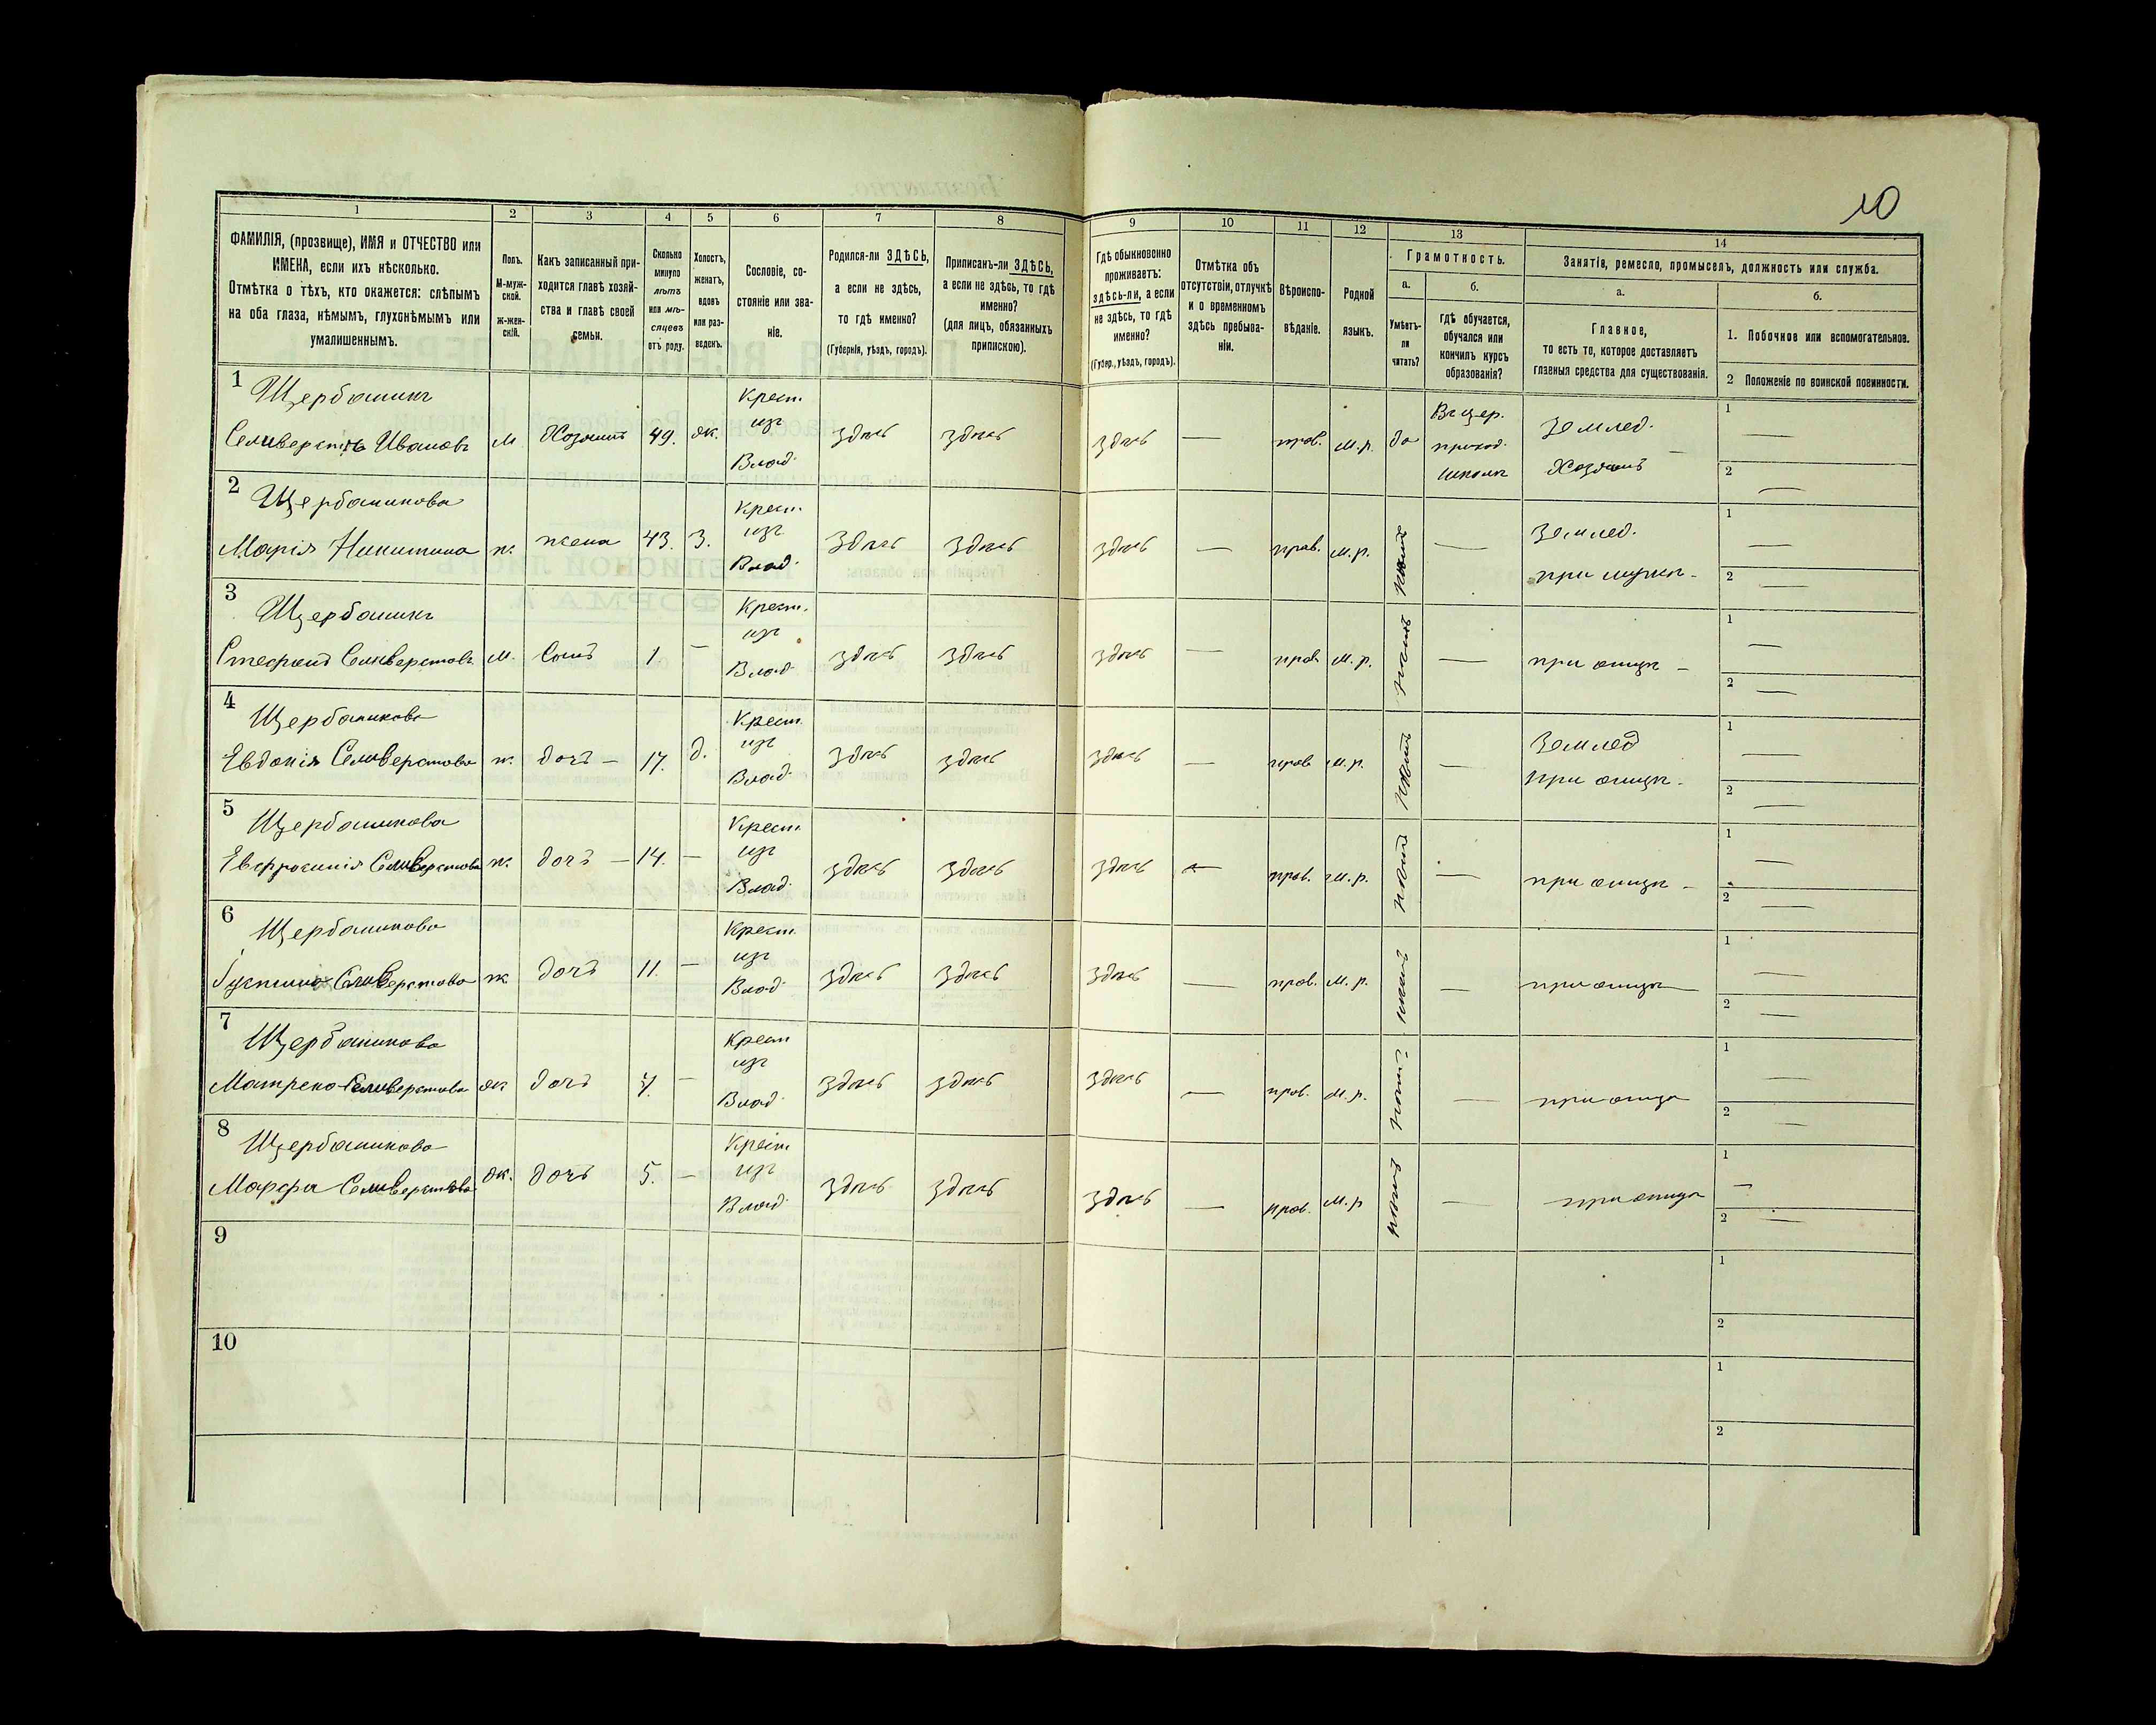 10
1 2 3 4 5 6 7 8 9 10 11 12 13 14
ФАМИЛІЯ, (прозвище), ИМЯ и ОТЧЕСТВО или
ИМЕНА, если ихъ нѣсколько.
Отмѣтка о тѣхъ, кто окажется: слѣпымъ
на оба глаза, нѣмымъ, глухонѣмымъ или
умалишеннымъ.
Полъ.
М-муж-
ской.
ж-жен-
скій.
Какъ записанный при-
ходится главѣ хозяй-
ства и главѣ своей
семьи.
Сколько
минуло
лѣтъ
или мѣ-
сяцевъ
отъ роду.
Холостъ,
женатъ,
вдовъ
или раз-
веденъ.
Сословіе, со-
стояніе или зва-
ніе.
Родился-ли ЗДѢСЬ,
а если не здѣсь,
то гдѣ именно?
(Губернія, уѣздъ, городъ).
Приписанъ-ли ЗДѢСЬ,
а если не здѣсь, то гдѣ
именно?
(для лицъ, обязанныхъ
припискою).
Гдѣ обыкновенно
проживаетъ:
здѣсь-ли, а если
не здѣсь, то гдѣ
именно?
(Губер., уѣздъ, городъ).
Отмѣтка объ
отсутствіи, отлучкѣ
и о временномъ
здѣсь пребыва-
ніи.
Вѣроиспо-
вѣданіе.
Родной
языкъ.
Грамотность.
а.
Умѣетъ-
ли
читать?
б.
гдѣ обучается,
обучался или
кончилъ курсъ
образованія?
Занятія, ремесло, промыселъ, должность или служба.
а.
Главное,
то есть то, которое доставляетъ
главныя средства для существованія.
б.
1. Побочное или вспомогательное.
2 Положеніе по воинской повинности.
1 Щербаникъ
Селиверстъ Ивановъ м Хозяинъ 49. ж. Крест. изъ Влад. здѣсь здѣсь здѣсь — прав. м.р. да Въ цер. приход. школѣ Землед. Хозяинъ 1 — 2 —
2 Щербаникова
Марія Никитина ж. жена 43. З. Крест. изъ Влад. здѣсь здѣсь здѣсь — прав. м.р. нѣтъ — Землед. при мужѣ - 1 — 2 —
3 Щербаникъ
Стефанъ Селиверстовъ м. Сынъ 1 — Крест. изъ Влад. здѣсь здѣсь здѣсь — прав м.р. нѣтъ — при отцѣ - 1 — 2 —
4 Щербаникова
Евдокія Селиверстова ж. дочь - 17. д. Крест. изъ Влад. здѣсь здѣсь здѣсь — прав м.р. нѣтъ — Землед при отцѣ - 1 — 2 —
5 Щербаникова
Евфросинія Селиверстова ж. дочь - 14. — Крест. изъ Влад. здѣсь здѣсь здѣсь — прав. м.р. нѣтъ — при отцѣ - 1 — 2 —
6 Щербаникова
Іустина Селиверстова ж дочь 11. — Крест. изъ Влад здѣсь здѣсь здѣсь — прав. м.р. нѣтъ — при отцѣ 1 — 2 —
7 Щербаникова
Матрена Селиверстова ж дочь 7. — Крест изъ Влад. здѣсь здѣсь здѣсь — прав. м.р. нѣтъ — при отцѣ 1 — 2 —
8 Щербаникова
Марфа Селиверстова ж. дочь 5. — Крест изъ Влад. здѣсь здѣсь здѣсь — прав. м.р нѣтъ — при отцѣ 1 — 2 —
9 1 2
10 1 2